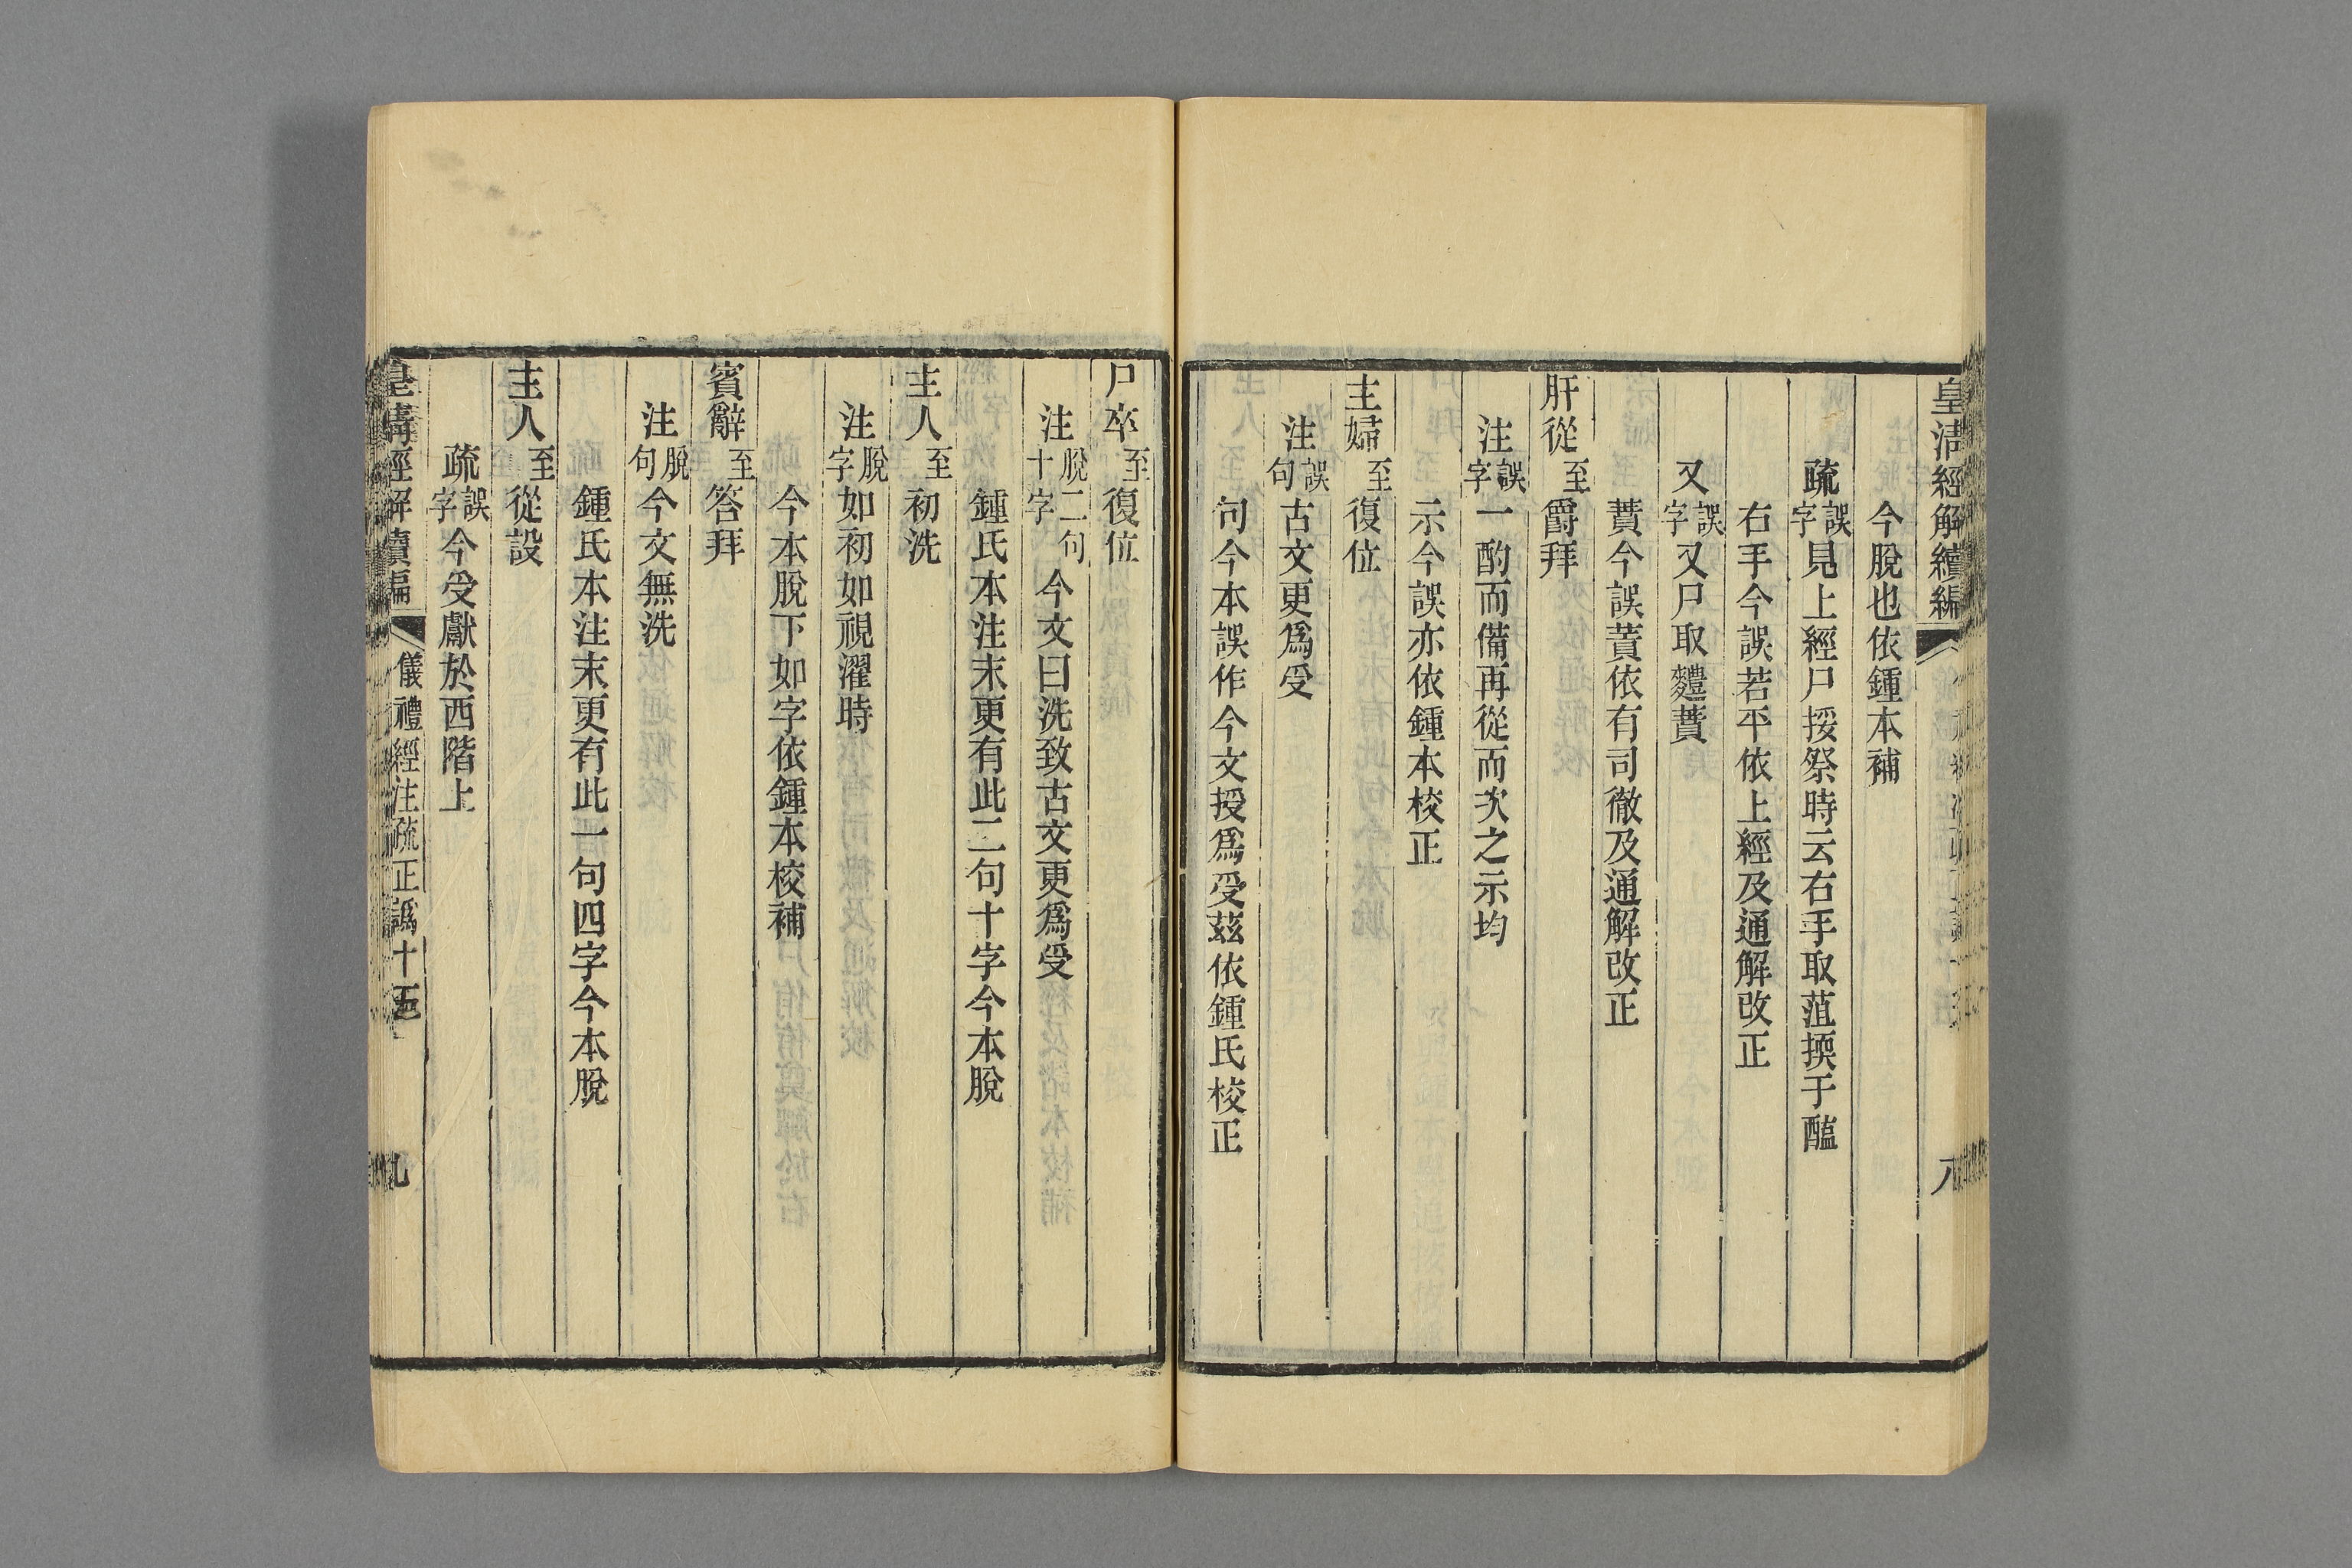 皇清經解續編
八
今脫也依鍾本補
疏誤字見上經尸挼祭時云右手取菹擩于醢
右手今誤若平依上經及通解改正
又誤字又尸取麷蕡
蕡今誤蕒依有司徹及通解改正
肝從至爵拜
注誤字一酌而備再從而次之示均
示今誤亦依鍾本校正
主婦至復位
注誤句古文更爲受
句今本誤作今文授爲受茲依鍾氏校正
尸卒至復位
注脫二句十字今文曰洗致古文更爲受
鍾氏本注末更有此二句十字今本脫
主人至初洗
注脫字如初如視濯時
今本脫下如字依鍾本校補
賓辭至答拜
注脫句今文無洗
鍾氏本注末更有此一句四字今本脫
主人至從設
疏誤字今受獻於西階上
皇清經解續編
儀禮經注疏正譌十五
九